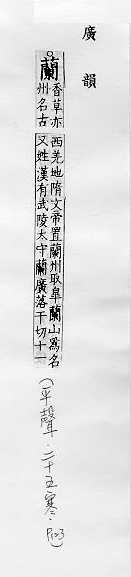 廣韻
○蘭
香草亦
州名古
西羌地隋文帝置蘭州取皐蘭山爲名
又姓漢有武陵太守蘭廣落干切十一
(平聲·二十五寒·P123)